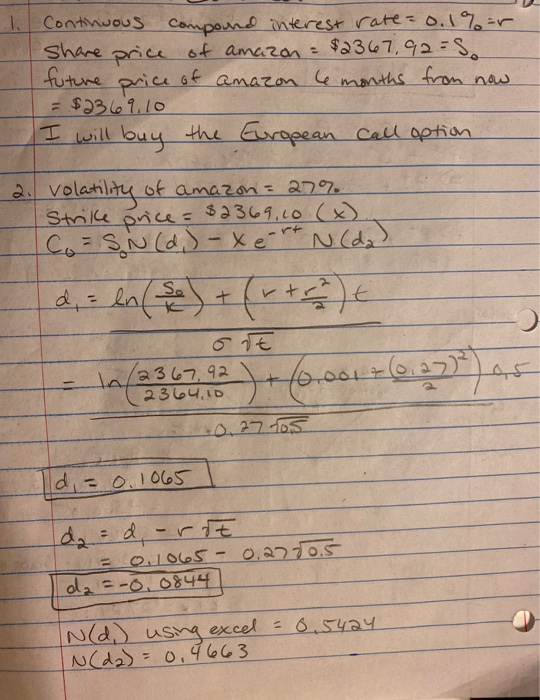 1. Continuous compound interest rate = 0.1% = r
Share price of amazon = $2367.92 = S₀
future price of amazon 6 months from now
= $2369.10
I will buy the European call option
2. volatility of amazon = 27%
Strike price = $2369.10 (x)
C₀ = S₀N(d₁) - Xe^-rt N(d₂)
d₁ = ln(S₀/K) + (r + r²/2)t
σ√t
= ln(2367.92/2369.10) + (0.001 + (0.27)²/2) 0.5
0.27√0.5
d₁ = 0.1065
d₂ = d₁ - r√t
= 0.1065 - 0.27√0.5
d₂ = -0.0844
N(d₁) using excel = 0.5424
N(d₂) = 0.4663